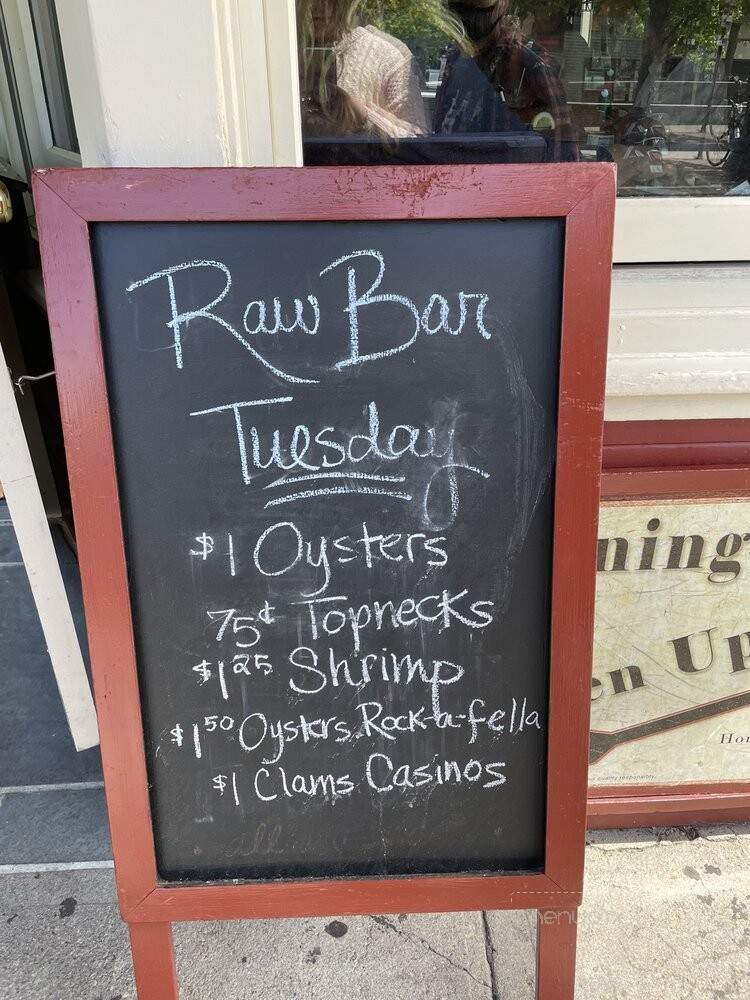 Raw Bar
Tuesday
$1 Oysters
75¢ Topnecks
$1.25 Shrimp
$1.50 Oysters Rock-a-fella
$1 Clams Casinos
ning
en Up
Hor
quality responsibly.